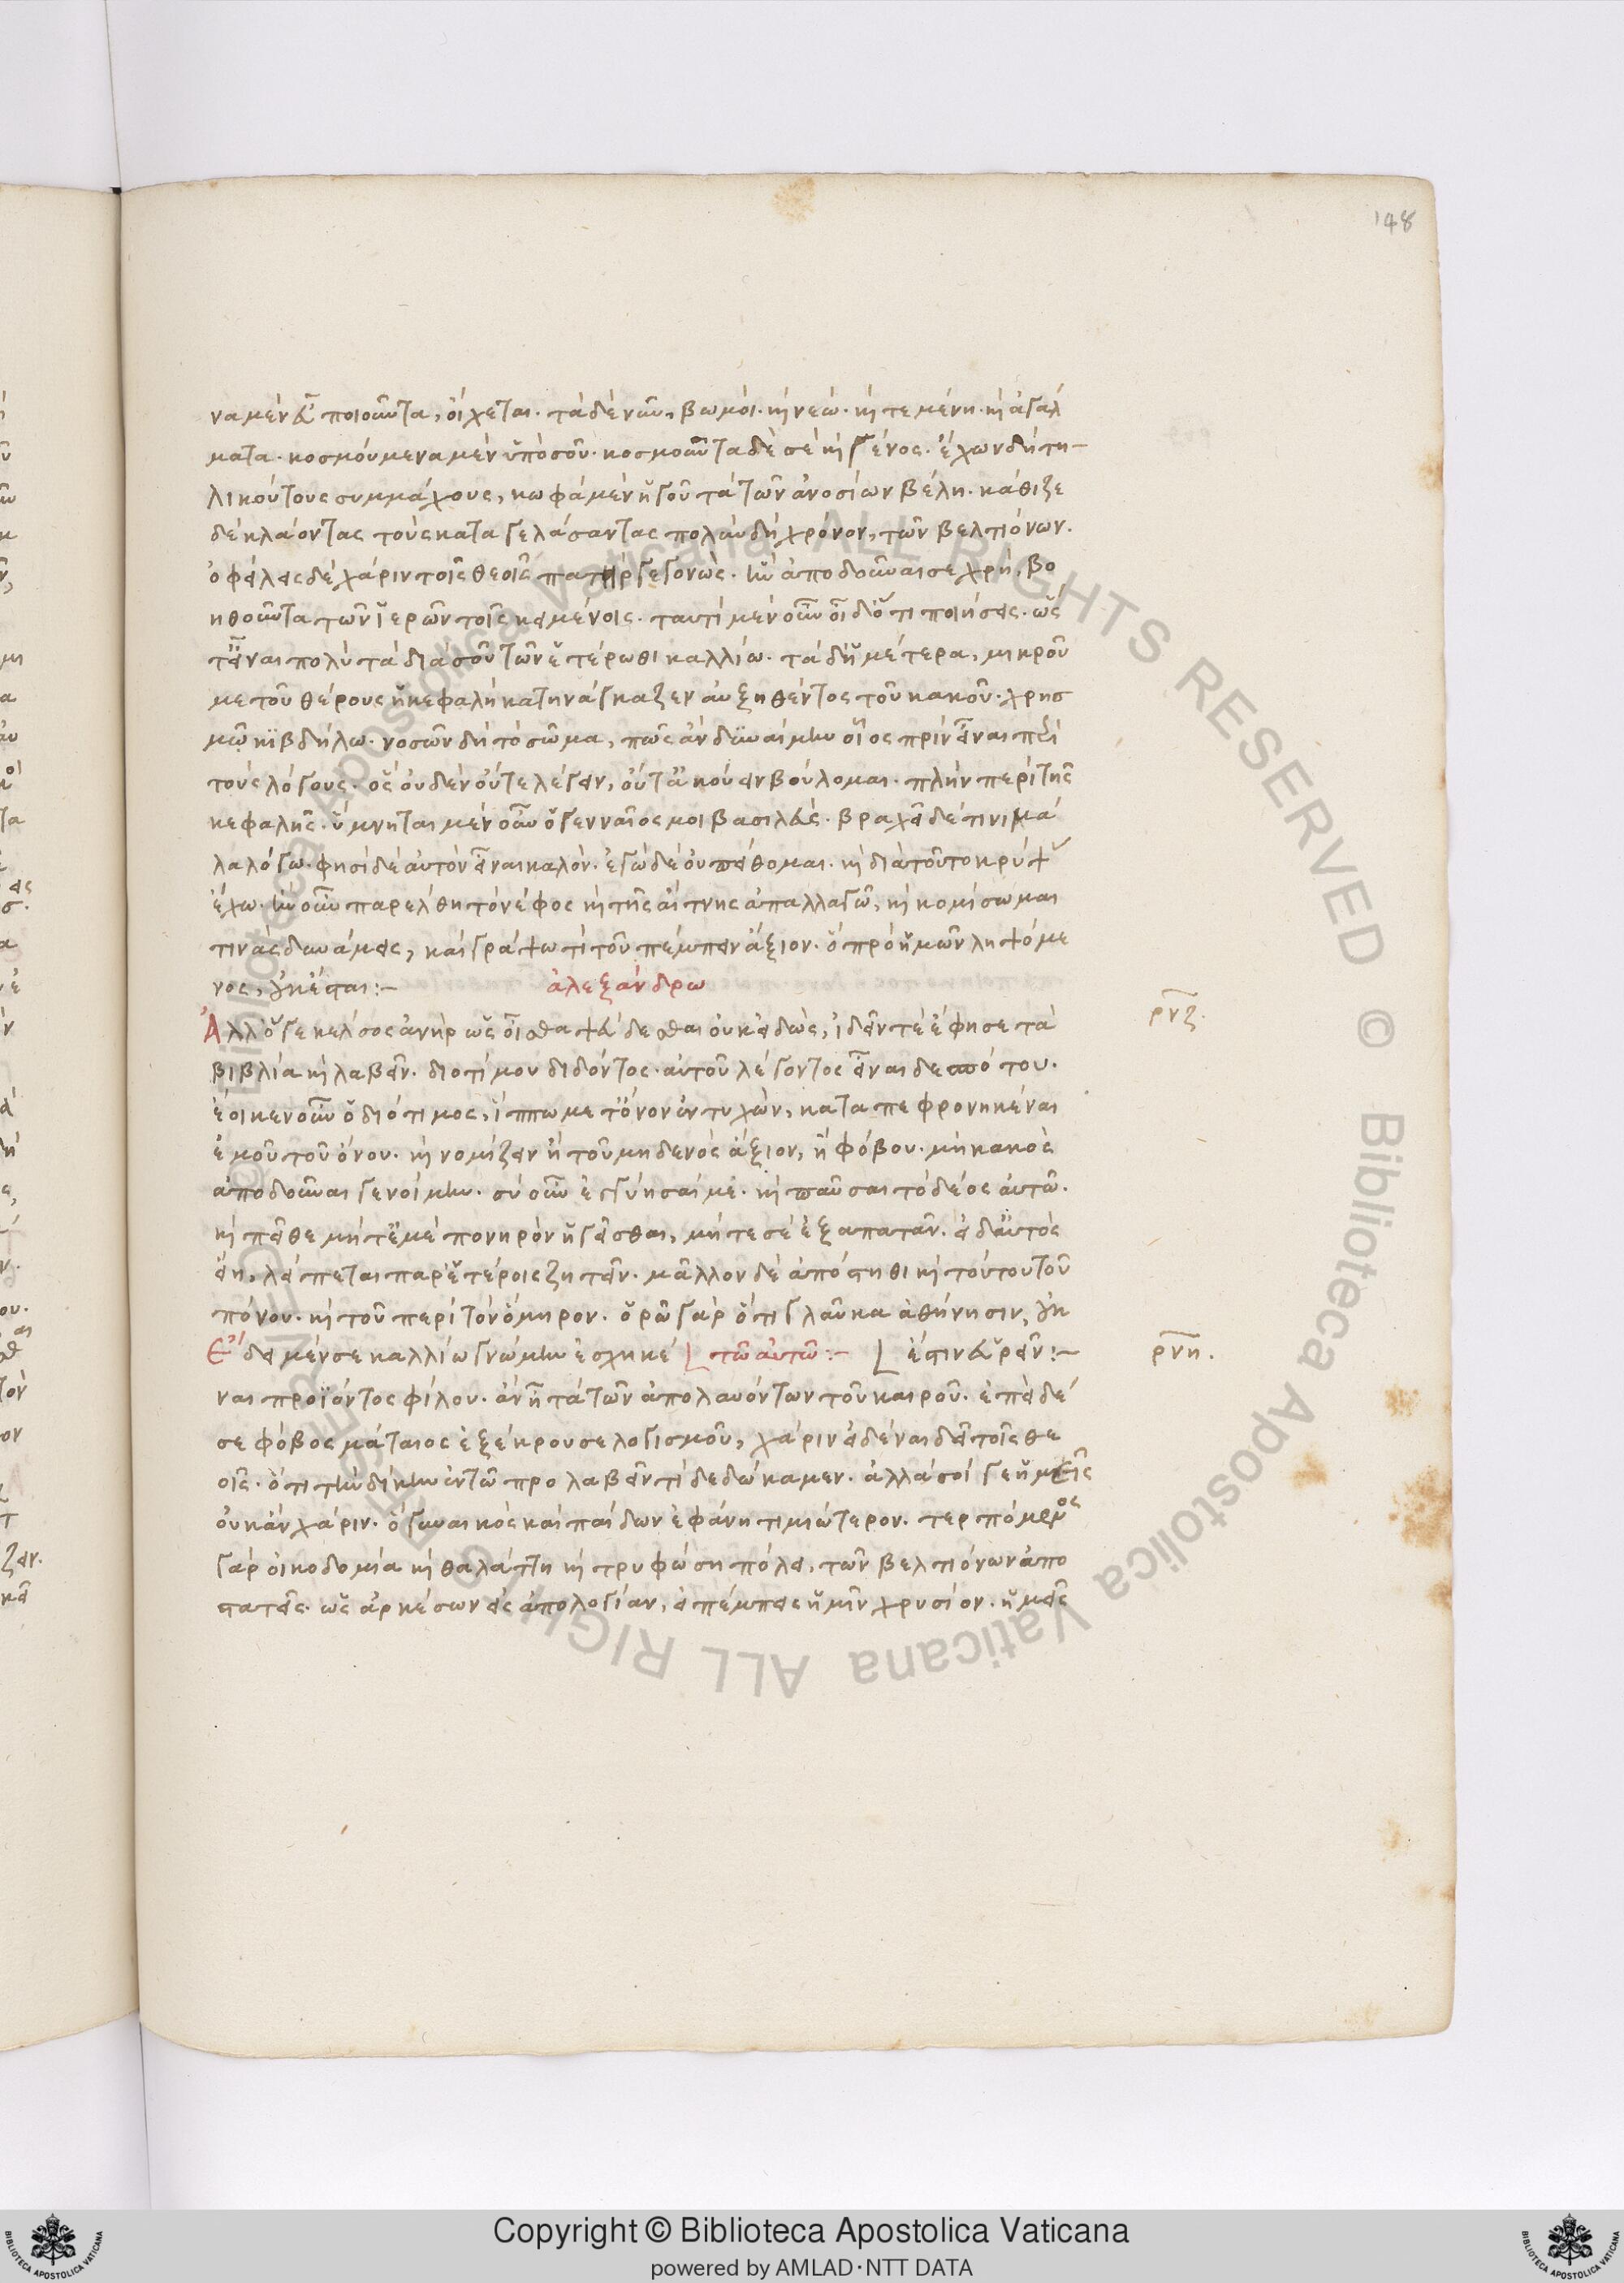 148
να μὲν εὖ ποιοῦντα, οἴχεται. τὰ δὲ νῦν, βωμοὶ. καὶ νεῲ. καὶ τεμένη. καὶ ἀγάλ
ματα. κοσμούμενα μὲν ὑπὸ σοῦ. κοσμοῦντα δὲ σὲ καὶ γένος. ἔχων δὴ τη-
λικούτους συμμάχους, κωφὰ μὲν ἡγοῦ τὰ τῶν ἀνοσίων βέλη. κάθιζε
δὲ κλάοντας τοὺς καταγελάσαντας πολὺν δὴ χρόνον, τῶν βελτιόνων.
ὀφείλεις δὲ χάριν τοῖς θεοῖς πατὴρ γεγονώς. ἣν ἀποδοῦναί σε χρὴ, βο
ηθοῦντα τῶν ἱερῶν τοῖς κειμένοις. ταυτὶ μὲν οὖν οἶδ' ὅτι ποιήσεις. ὥς
τ' εἶναι πολὺ τὰ διὰ σοῦ τῶν ἑτέρωθι καλλίω. τὰ δ' ἡμέτερα, μικροῦ
με τοῦ θέρους ἡ κεφαλὴ κατηνάγκαζεν αὐξηθέντος τοῦ κακοῦ. χρησ
μῷ κιβδήλῳ. νοσῶν δὴ τὸ σῶμα, πῶς ἂν δυναίμην οἷος πρὶν εἶναι περὶ
τοὺς λόγους. ὃς οὐδὲν οὔτε λέγειν, οὔτ' ἀκούειν βούλομαι. πλὴν περὶ τῆς
κεφαλῆς. ὕμνηται μὲν οὖν ὁ γενναῖός μοι βασιλεύς. βραχεῖ δέ τινι μά
λα λόγῳ. φησὶ δὲ αὐτὸν εἶναι καλόν. ἐγὼ δὲ οὐ πείθομαι. καὶ διὰ τοῦτο κρύψ
ἔχω. ἢν οὖν παρέλθη τὸ νέφος καὶ τῆς αἴτνης ἀπαλλαγῶ, καὶ κομίσωμαι
τινὰς δυνάμεις, καὶ γράψω τὶ τοῦ πέμπειν ἄξιον. ὁ πρὸ ἡμῶν ληψόμε
νος, οὐκ ἔσται:-
ἀλεξάνδρω
Ἀλλ' ὅ γε κέλσος ἀνὴρ ὡς οἶσθα ψεύδεσθαι οὐκ εἰδὼς, ἰδεῖν τέ ἔφησε τὰ
ρνζ.
βιβλία καὶ λαβεῖν. διοτίμου διδόντος. αὐτοῦ λέγοντος εἶναι δεσπότου.
ἔοικεν οὖν ὁ διότιμος, ἵππω μετ' ὄνον ἐντυχὼν, καταπεφρονηκέναι
ἐμοῦ τοῦ ὄνου. καὶ νομίζειν ἢ τοῦ μηδενὸς ἄξιον, ἢ φόβου. μὴ κακὸς
ἀποδοῦναι γενοίμην. σὺ οὖν ἐγγύησαί με. καὶ παῦσαι τὸ δέος αὐτῶ.
καὶ πεῖθε μήτ' ἐμὲ πονηρὸν ἡγεῖσθαι, μήτε σὲ ἐξαπατᾶν. εἰ δ' αὐτὸς
εἴη, λείπεται παρ' ἑτέροις ζητεῖν. μᾶλλον δὲ ἀπόστηθι καὶ τούτου τοῦ
πόνου. καὶ τοῦ περὶ τὸν ὅμηρον. ὁρῶ γὰρ ὅτι γλαῦκα ἀθήνησιν, οὐκ
ἔστιν εὑρεῖν:-
τῶ αὐτῶ:-
Ἔδει μέν σε καλλίω γνώμην ἐσχηκέ
ρνη.
ναι προϊόντος φίλου. ἀν' ᾗ τὰ τῶν ἀπολαυόντων τοῦ καιροῦ. ἐπεὶ δέ
σε φόβος μάταιος ἐξέκρουσε λογισμοῦ, χάριν εἰδέναι δεῖ τοῖς θε
οῖς. ὅτι τὴν δίκην ἐν τῶ προλαβεῖν τὶ δεδώκαμεν. ἀλλὰ σοί γε ἡμεῖς
οὐκ ἂν χάριν. ὃ γυναικὸς καὶ παίδων ἐφάνη τιμιώτερον. τερπόμενος
γὰρ οἰκοδομία καὶ θαλάττη καὶ τρυφώση πόλει, τῶν βελτιόνων ἀπο
στατεῖς. ὡς ἀρκέσων εἰς ἀπολογίαν, εἰ πέμπεις ἡμῖν χρυσίον. ἡμεῖς
Copyright © Biblioteca Apostolica Vaticana
powered by AMLAD·NTT DATA